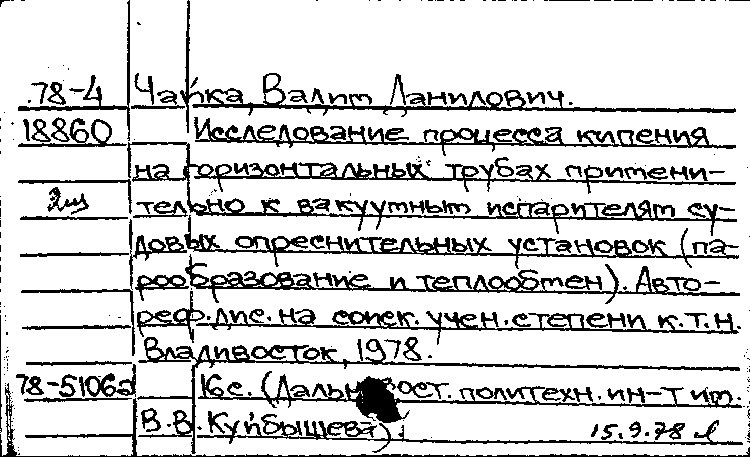 78-4 Чайка, Вадим Данилович.
18860 Исследование процесса кипения
на горизонтальных трубах примени-
2 тельно к вакуумным испарителям су-
довых опреснительных установок (па-
рообразование и теплообмен). Авто-
реф. дис. на соиск. учен. степени к.т.н.
Владивосток, 1978.
78-5106а 16с. (Дальневост. политехн. ин-т им.
В.В. Куйбышева). 15.9.78